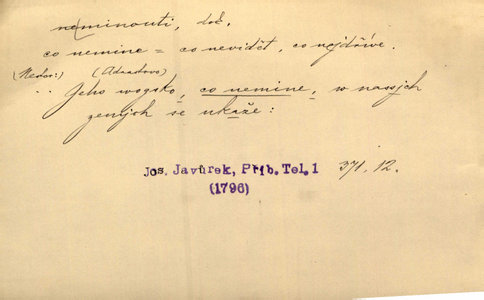 neminouti, dok.
co nemine = co nevidět, co nejdříve.
(Nedoš.) (Adnadovo)
Jeho wogsko, co nemine, w nassjch
zemjch se ukaže:
Jos. Javůrek, Příb. Tel. 1 371. 12.
(1796)